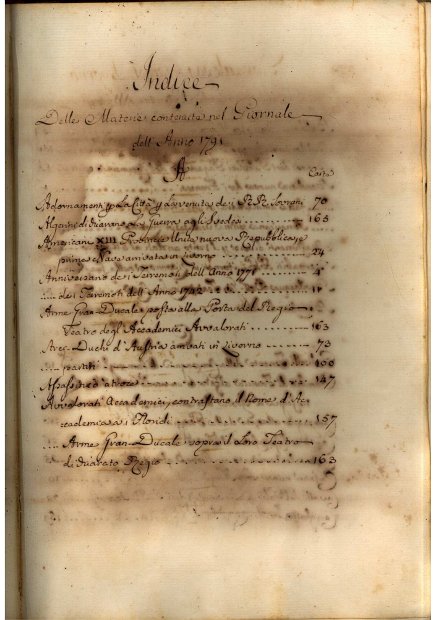 Indice
Delle Materie contenute nel Giornale
dell'Anno 1791
A
Carte
Adornamenti La Città La venuta de i 70
Algerini la guerra agli Svedesi 165
Americani XIII Provincie Unite nuova Repubblica, e
prima Nave arrivata in Livorno 24
Anniversario de i Terremoti dell'Anno 1771 4
de i Terremoti dell'Anno 1742 17
Arme Gran-Ducale posta alla Porta del Regio
Teatro degli Accademici Avvalorati 163
Arci-Duchi d'Austria arrivati in Livorno 73
partiti 100
Assassinio atroce 147
Avvalorati Accademici, contrastano il Nome d'Ac-
cademia a i Floridi 157
Arme Gran Ducale sopra il Loro Teatro
Regio 163